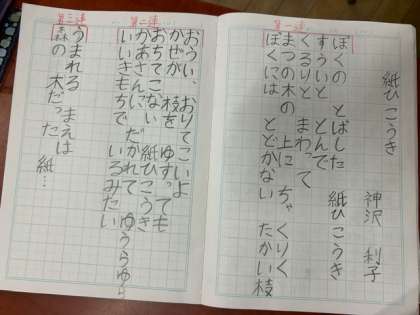 紙ひこうき
神沢 利子
第一連
ぼくの とばした 紙ひこうき
すういと とんで
くるりと まわって
まつの木の 上に ちゃくりく
ぼくには とどかない たかい枝
第二連
おうい、おりてこいよ
かぜが 枝を ゆすっても
おちてこない 紙ひこうき
かあさんに だかれて
いいきもちで いるみたい ゆうらゆら
第三連
うまれる まえは
森の 木だった 紙…